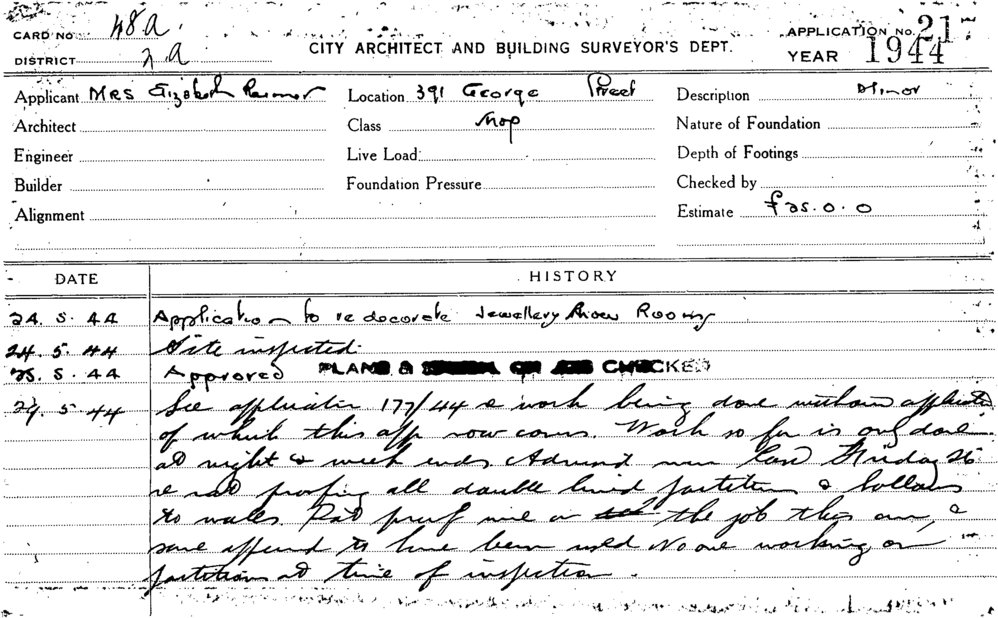 CARD NO 48A
DISTRICT 2A
CITY ARCHITECT AND BUILDING SURVEYOR'S DEPT.
APPLICATION No. 21
YEAR 1944
Applicant MRS
Location 391 George Street
Description Minor
Architect
Class Shop
Nature of Foundation
Engineer
Live Load
Depth of Footings
Builder
Foundation Pressure
Checked by
Alignment
Estimate £25.0.0
DATE
HISTORY
24.5.44 Application to redecorate Jewellery Show Rooms
24.5.44 Site inspected.
25.5.44 Approved PLANS & ON JOB CHECKED
5.44 See application 177/44 work being done without
of which this app now covers. Work so far is only done
at night & week ends. Friday 26
re rat proofing all double lined partitions & hollows
to walls. Rat proof wire on the job this &
some to have been used No one working on
partitions at time of inspection.